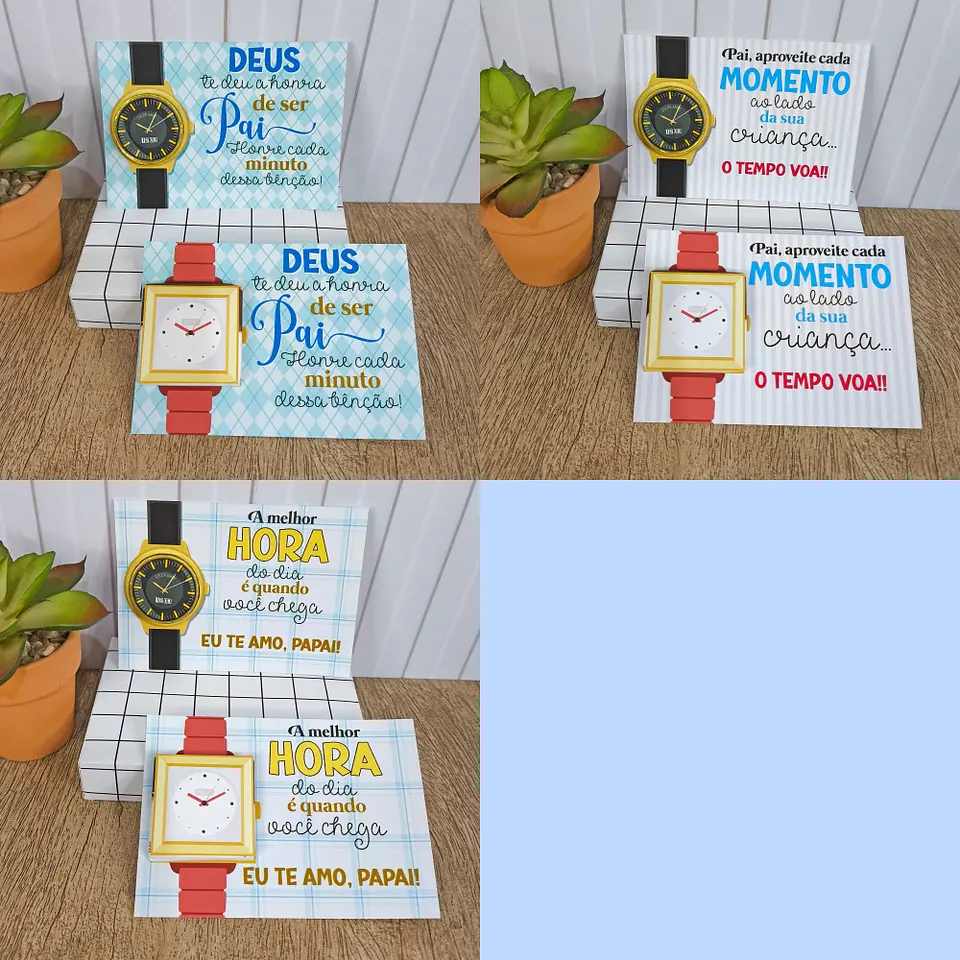 DEUS
te deu a honra
de ser
Pai
Honre cada
minuto
dessa bênção!
DEUS
te deu a honra
de ser
Pai
Honre cada
minuto
dessa bênção!
Pai, aproveite cada
MOMENTO
ao lado
da sua
criança...
O TEMPO VOA!!
Pai, aproveite cada
MOMENTO
ao lado
da sua
criança...
O TEMPO VOA!!
A melhor
HORA
do dia
é quando
você chega
EU TE AMO, PAPAI!
A melhor
HORA
do dia
é quando
você chega
EU TE AMO, PAPAI!